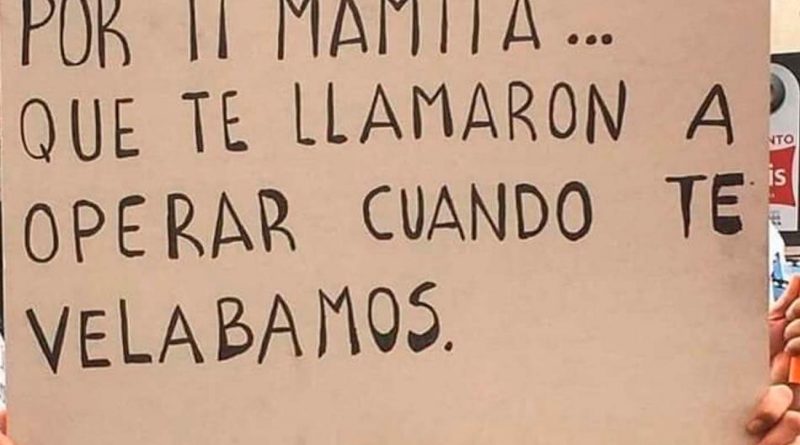 POR TI MAMITA...
QUE TE LLAMARON A
OPERAR CUANDO TE
VELABAMOS.
NTO
is